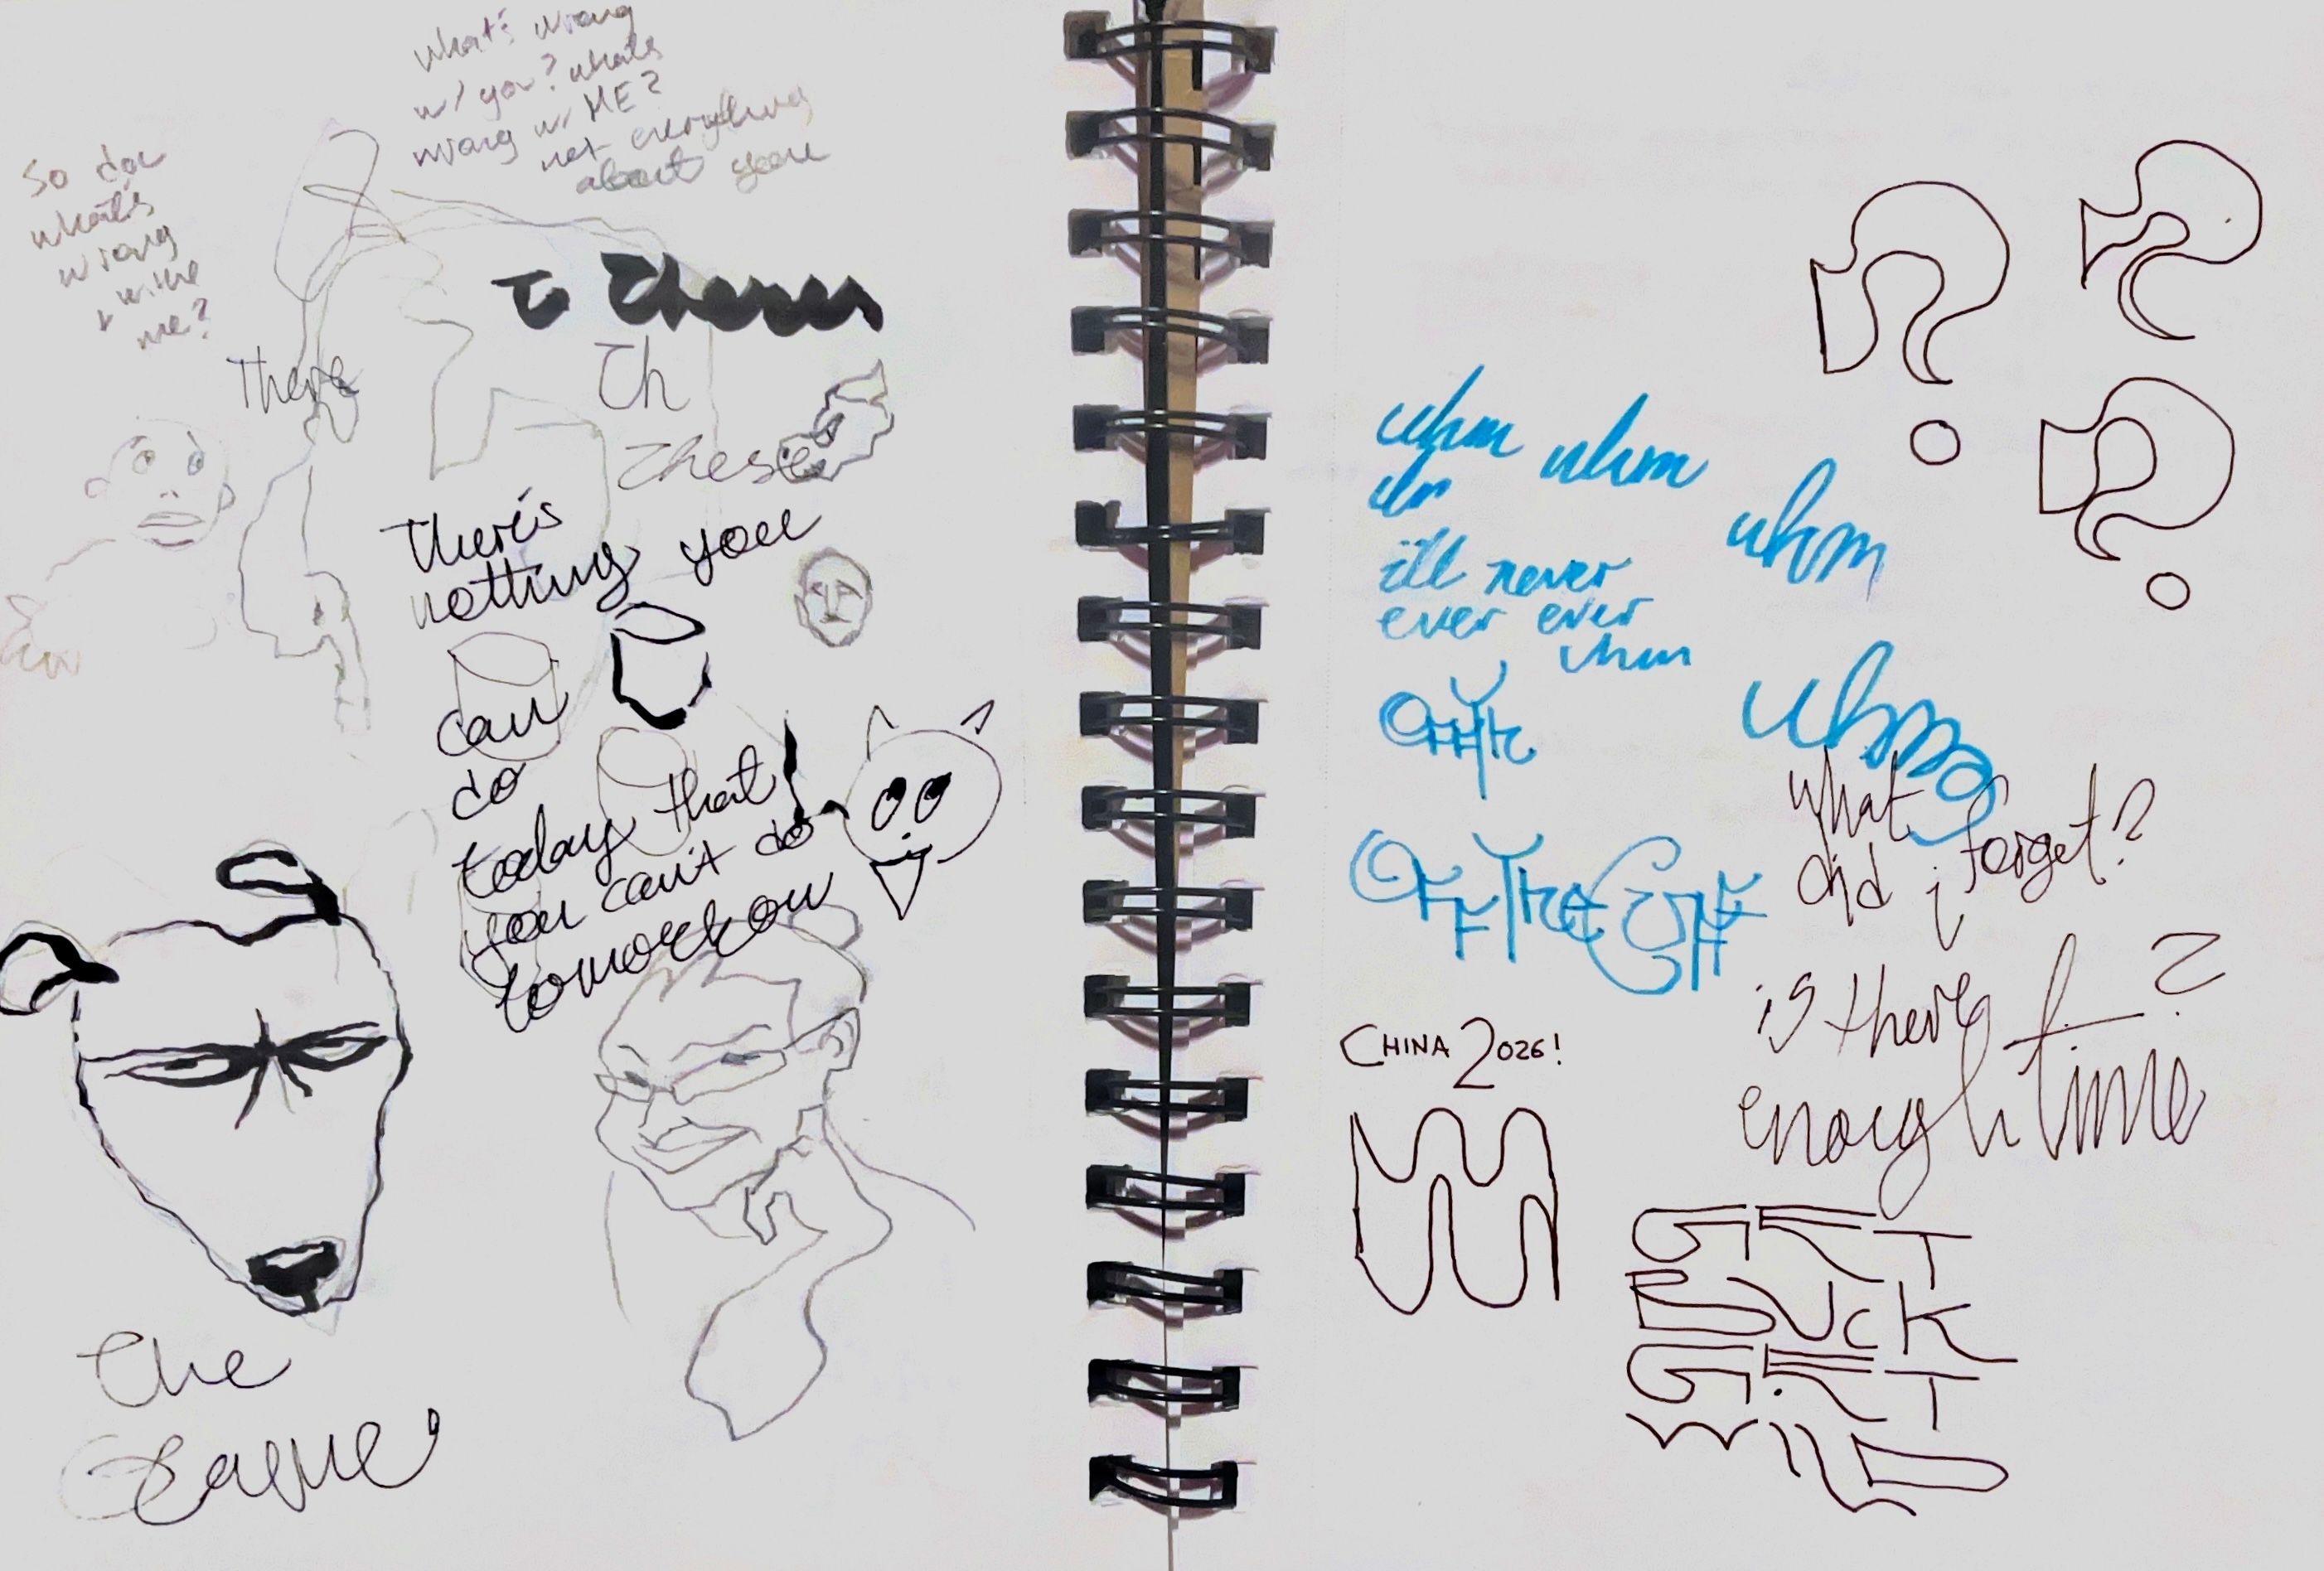 what's wrong
w/ you? what's
wrong w/ ME?
not everything
about you
so
what's
wrong
me?
To
There
Th
These
There's
nothing you
can
do
today that
you can't do
tomorrow
The
uhm uhm
uhm
i'll never
ever ever
uhm
uhm
OFF THE
what
did i forget?
CHINA 2026!
is there
enough time?
GET
BUCK
GET
WILD